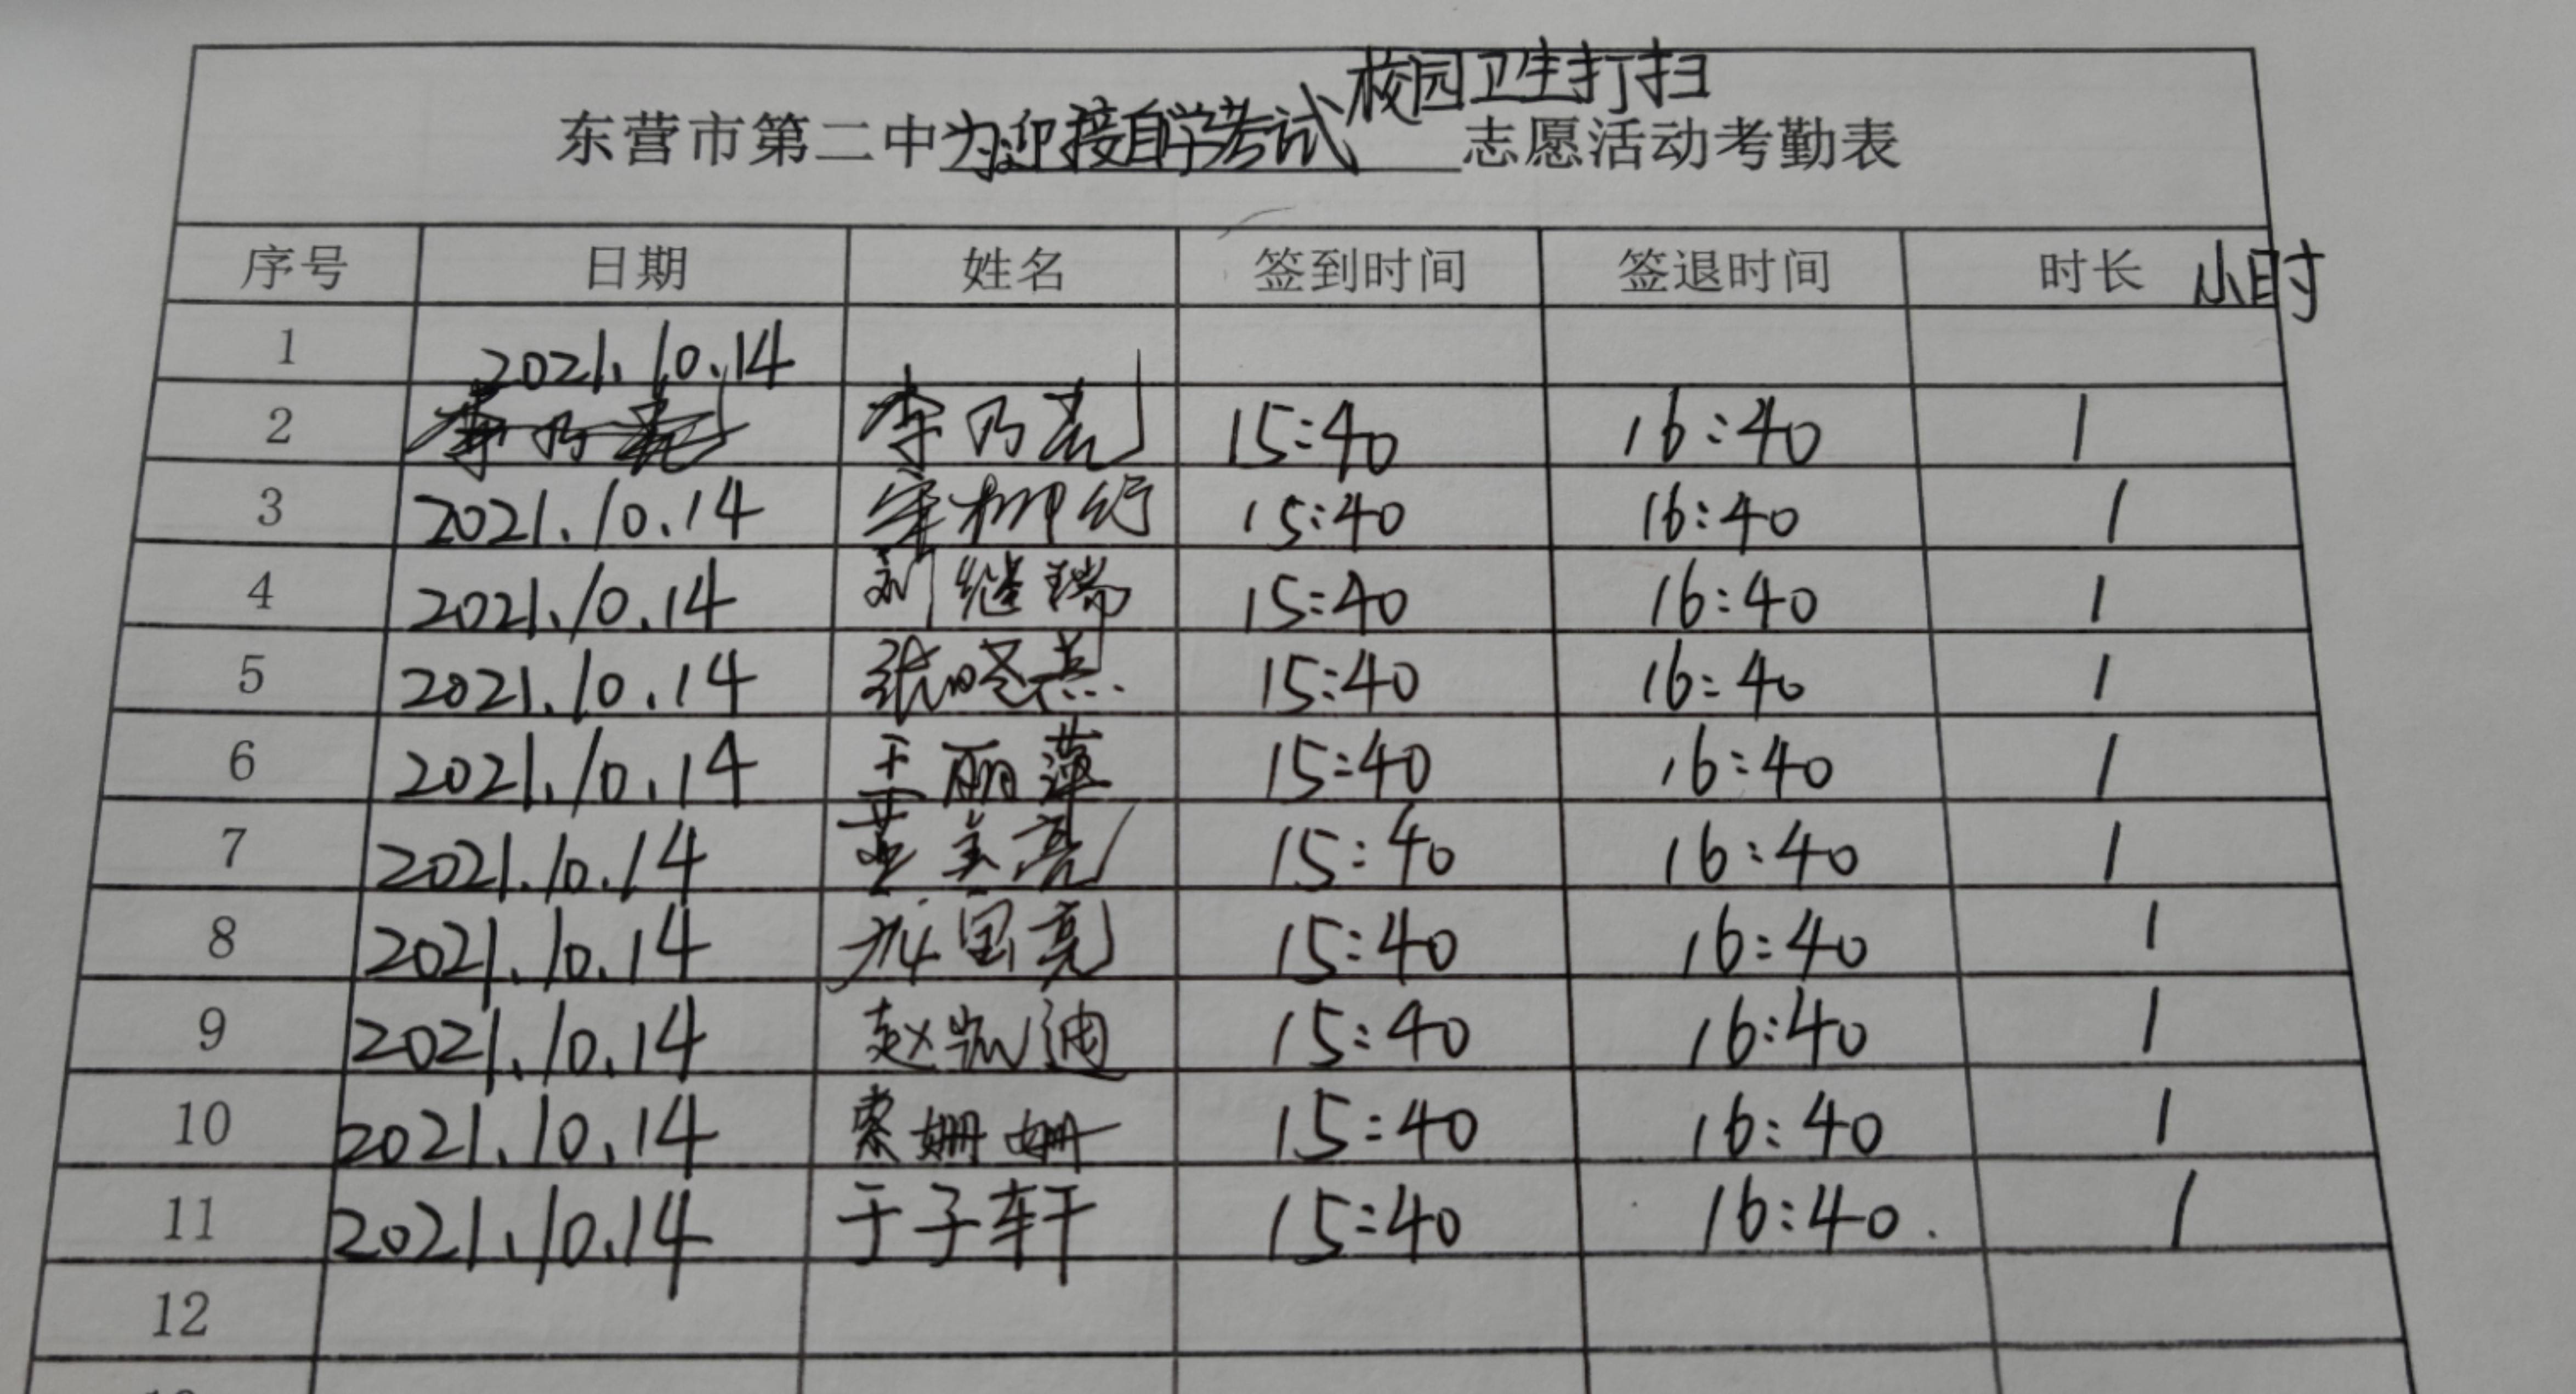 校园卫生打扫
东营市第二中为迎接自学考试志愿活动考勤表
序号 日期 姓名 签到时间 签退时间 时长 小时
1 2021.10.14
2 李乃亮 15:40 16:40 1
3 2021.10.14 宋柳 15:40 16:40 1
4 2021.10.14 刘继瑞 15:40 16:40 1
5 2021.10.14 张晓燕 15:40 16:40 1
6 2021.10.14 王丽萍 15:40 16:40 1
7 2021.10.14 董金亮 15:40 16:40 1
8 2021.10.14 宝亮 15:40 16:40 1
9 2021.10.14 赵凯迪 15:40 16:40 1
10 2021.10.14 索姗姗 15:40 16:40 1
11 2021.10.14 于子轩 15:40 16:40 1
12